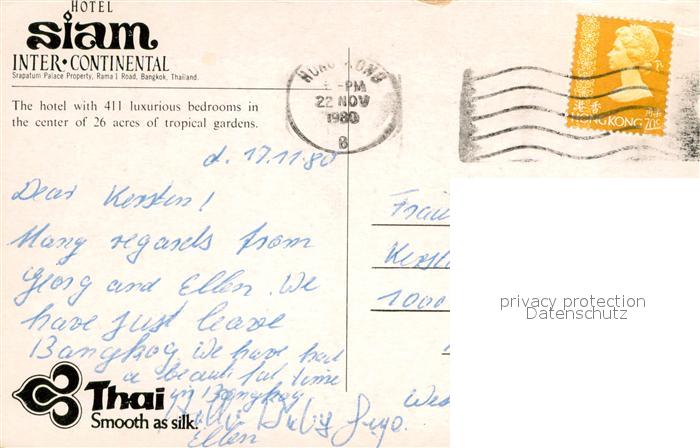 HOTEL
Siam
INTER•CONTINENTAL
Srapatum Palace Property, Rama 1 Road, Bangkok, Thailand.
The hotel with 411 luxurious bedrooms in
the center of 26 acres of tropical gardens.
HONG KONG
PM
22 NOV
1980
B
香港
HONG KONG
70¢
d. 17.11.80
Dear Kerstin!
Many regards from
Georg and Ellen. We
have just leave
Bangkog We have had
a beautiful time
in Bangkog
Ellen
Frau
Kersti
1000
Wes
privacy protection
Datenschutz
Thai
Smooth as silk.